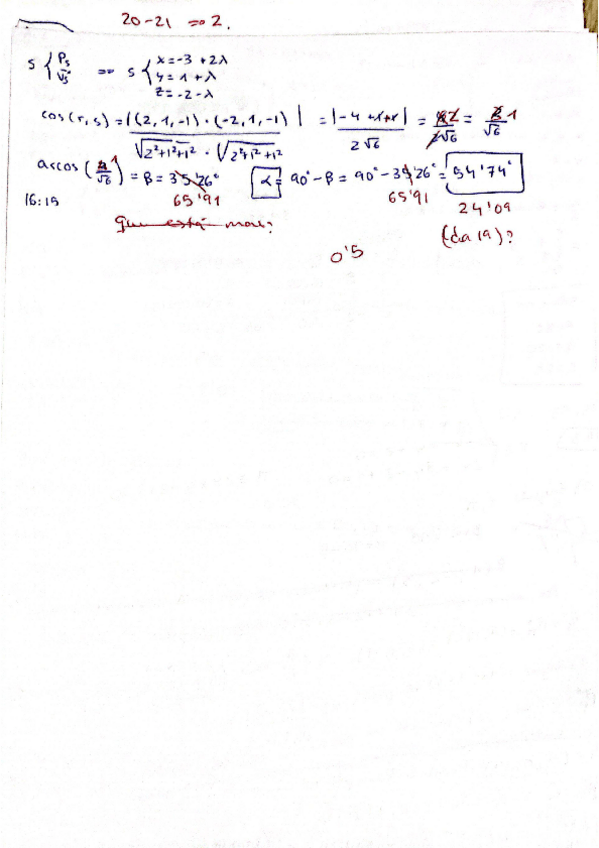 20-21 => 2.
S { Ps Vs => S { x=-3+2λ
y=1+λ
z=-2-λ
cos(r,s) = |(2,1,-1)·(-2,1,-1)| / √2²+1²+1² · √2²+1²+1² = |-4+1+1| / 2√6 = 2/√6 = 1/√6
arcos(1/√6) = β = 35'26° α = 90° - β = 90° - 35'26° = 54'74°
65'91 65'91 24'09
16:15
que está mal? (da 19)?
0'5